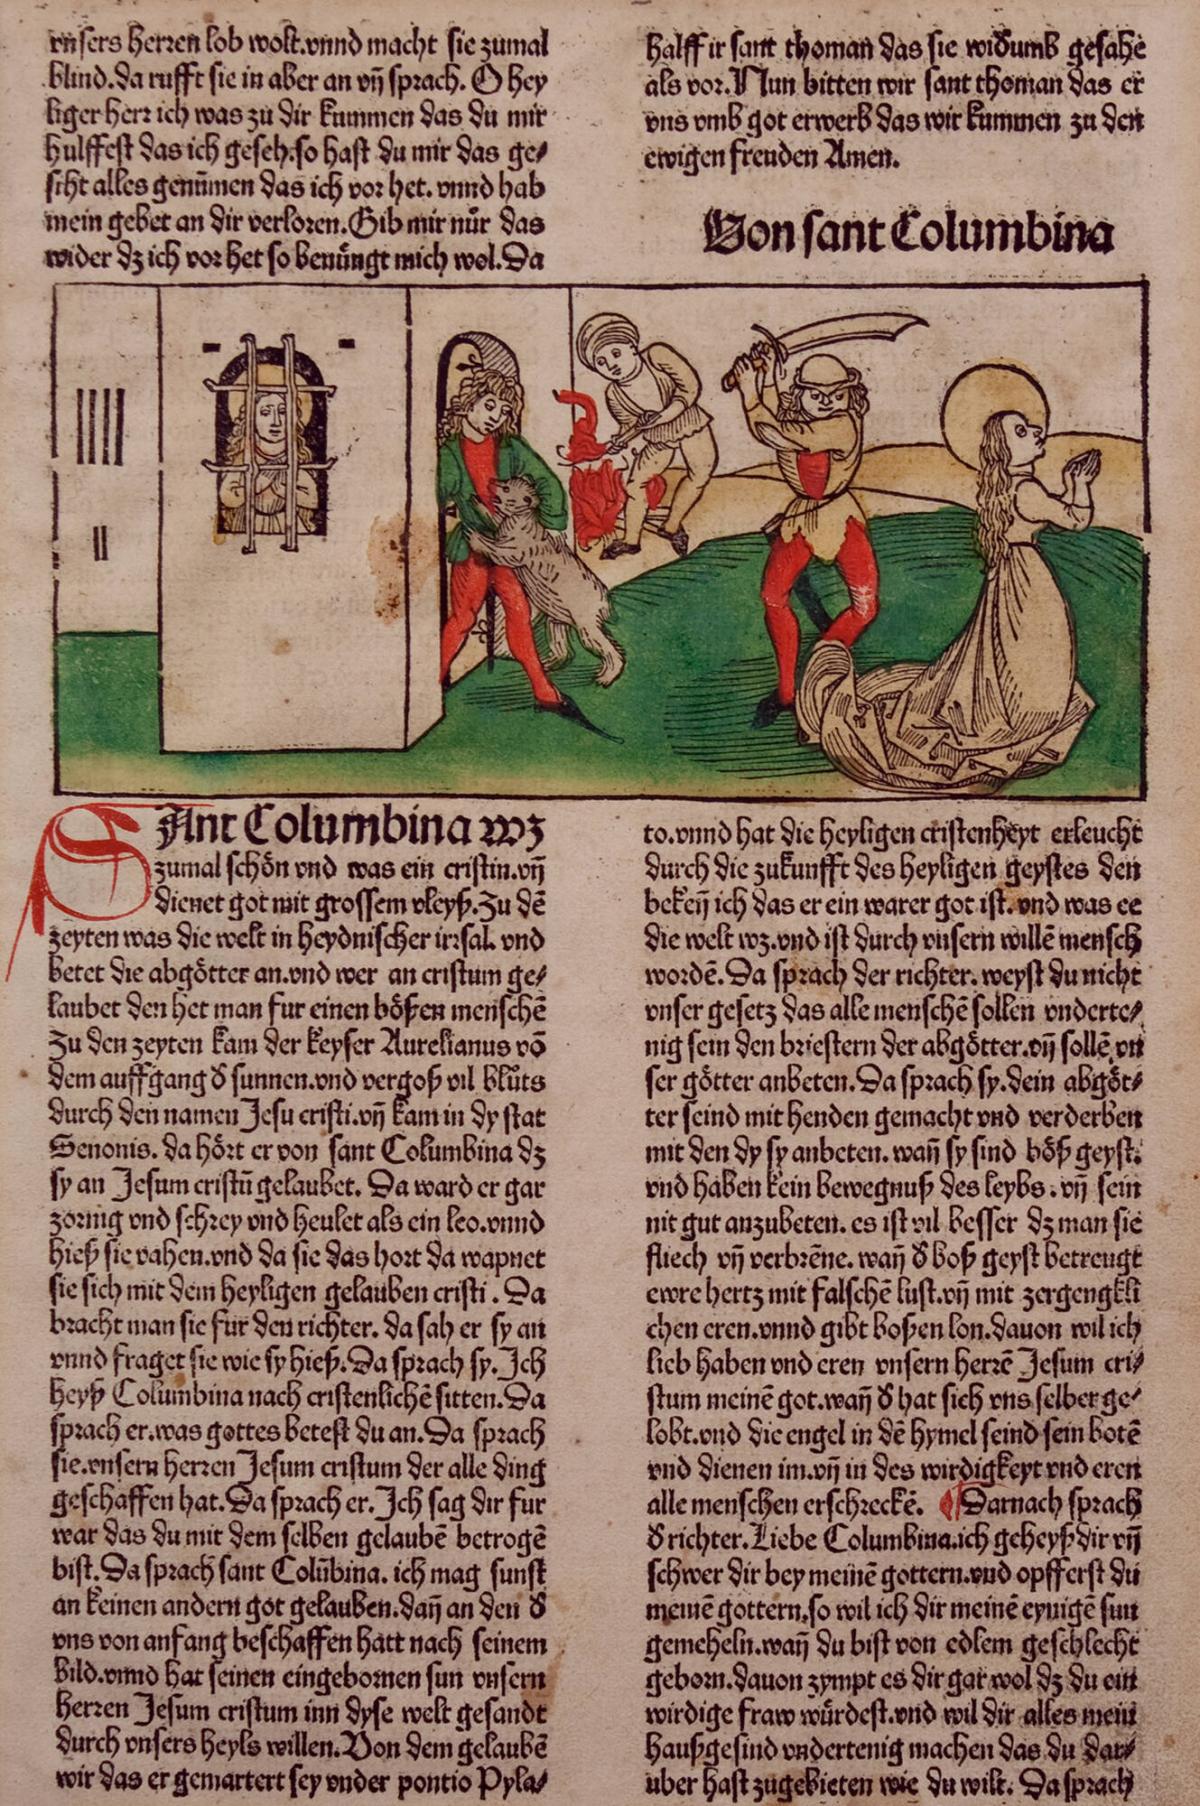 vnsers herren lob wolt.vnnd macht sie zumal
blind.da rufft sie in aber an vñ sprach. O hey
liger herr ich was zu dir kummen das du mir
hulffest das ich geseh.so hast du mir das ge⸗
siht alles genūmen das ich vor het. vnnd hab
mein gebet an dir verloren.Gib mir nůr das
wider dz ich vor het so benüngt mich wol.Da
halff ir sant thoman das sie widumb gesahe
als vor.Nun bitten wir sant thoman das er
vns vmb got erwerb das wir kummen zu den
ewigen freuden Amen.
Von sant Columbina
SAnt Columbina wz
zumal schön vnd was ein cristin.vñ
dienet got mit grossem vleyß.Zu dē
zeyten was die welt in heydnischer irrsal. vnd
betet die abgötter an.vnd wer an cristum ge⸗
laubet den het man fur einen bößen menschē
Zu den zeyten kam der keyser Aurelianus vō
dem auffgang d sunnen.vnd vergoß vil blůts
durch den namen Jesu cristi.vñ kam in dy stat
Senonis. da hört er von sant Columbina dz
sy an Jesum cristū gelaubet. Da ward er gar
zornig vnd schrey vnd heulet als ein leo.vnnd
hieß sie vahen.vnd da sie das hort da wapnet
sie sich mit dem heyligen gelauben cristi. Da
bracht man sie fur den richter. da sah er sy an
vnnd fraget sie wie sy hieß.Da sprach sy.Ich
heyß Columbina nach cristenlichē sitten.Da
sprach er.was gottes betest du an.Da sprach
sie.vnsern herren Jesum cristum der alle ding
geschaffen hat.Da sprach er.Ich sag dir fur
war das du mit dem selben gelaubē betrogē
bist.Da sprach sant Colūbina. ich mag sunst
an keinen andern got gelauben.dañ an den d
vns von anfang beschaffen hatt nach seinem
bild.vnnd hat seinen eingebornen sun vnsern
herren Jesum cristum inn dyse welt gesandt
durch vnsers heyls willen.Von dem gelaubē
wir das er gemartert sey vnder pontio Pyla⸗
to.vnnd hat die heyligen cristenheyt erleucht
durch die zukunfft des heyligen geystes den
bekeñ ich das er ein warer got ist. vnd was ee
die welt wz.vnd ist durch vnsern willē mensch
wordē.Da sprach der richter. weyst du nicht
vnser gesetz das alle menschē sollen vnderte⸗
nig sein den briestern der abgötter.vñ sollē vn
ser götter anbeten.Da sprach sy.dein abgöt⸗
ter seind mit henden gemacht vnd verderben
mit den dy sy anbeten. wañ sy sind böß geyst.
vnd haben kein bewegnuß des leybs. vñ sein
nit gut anzubeten. es ist vil besser dz man sie
fliech vñ verbrēne. wañ d boß geyst betreugt
ewre hertz mit falschē lust.vñ mit zergengkli
chen eren.vnnd gibt boßen lon.dauon wil ich
lieb haben vnd eren vnsern herrē Jesum cri⸗
stum meinē got.wañ d hat sich vns selber ge⸗
lobt.vnd die engel in dē hymel seind sein botē
vnd dienen im.vñ in des wirdigkeyt vnd eren
alle menschen erschreckē. ¶ Darnach sprach
d richter.Liebe Columbina.ich geheyß dir vñ
schwer dir bey meinē gottern.vnd opfferst du
meinē gottern.so wil ich dir meinē eynigē sun
gemeheln.wañ du bist von edlem geschlecht
geborn.dauon zympt es dir gar wol dz du ein
wirdige fraw würdest.vnd wil dir alles mein
haußgesind vndertenig machen das du dar⸗
uber hast zugebieten wie du wilt. Da sprach